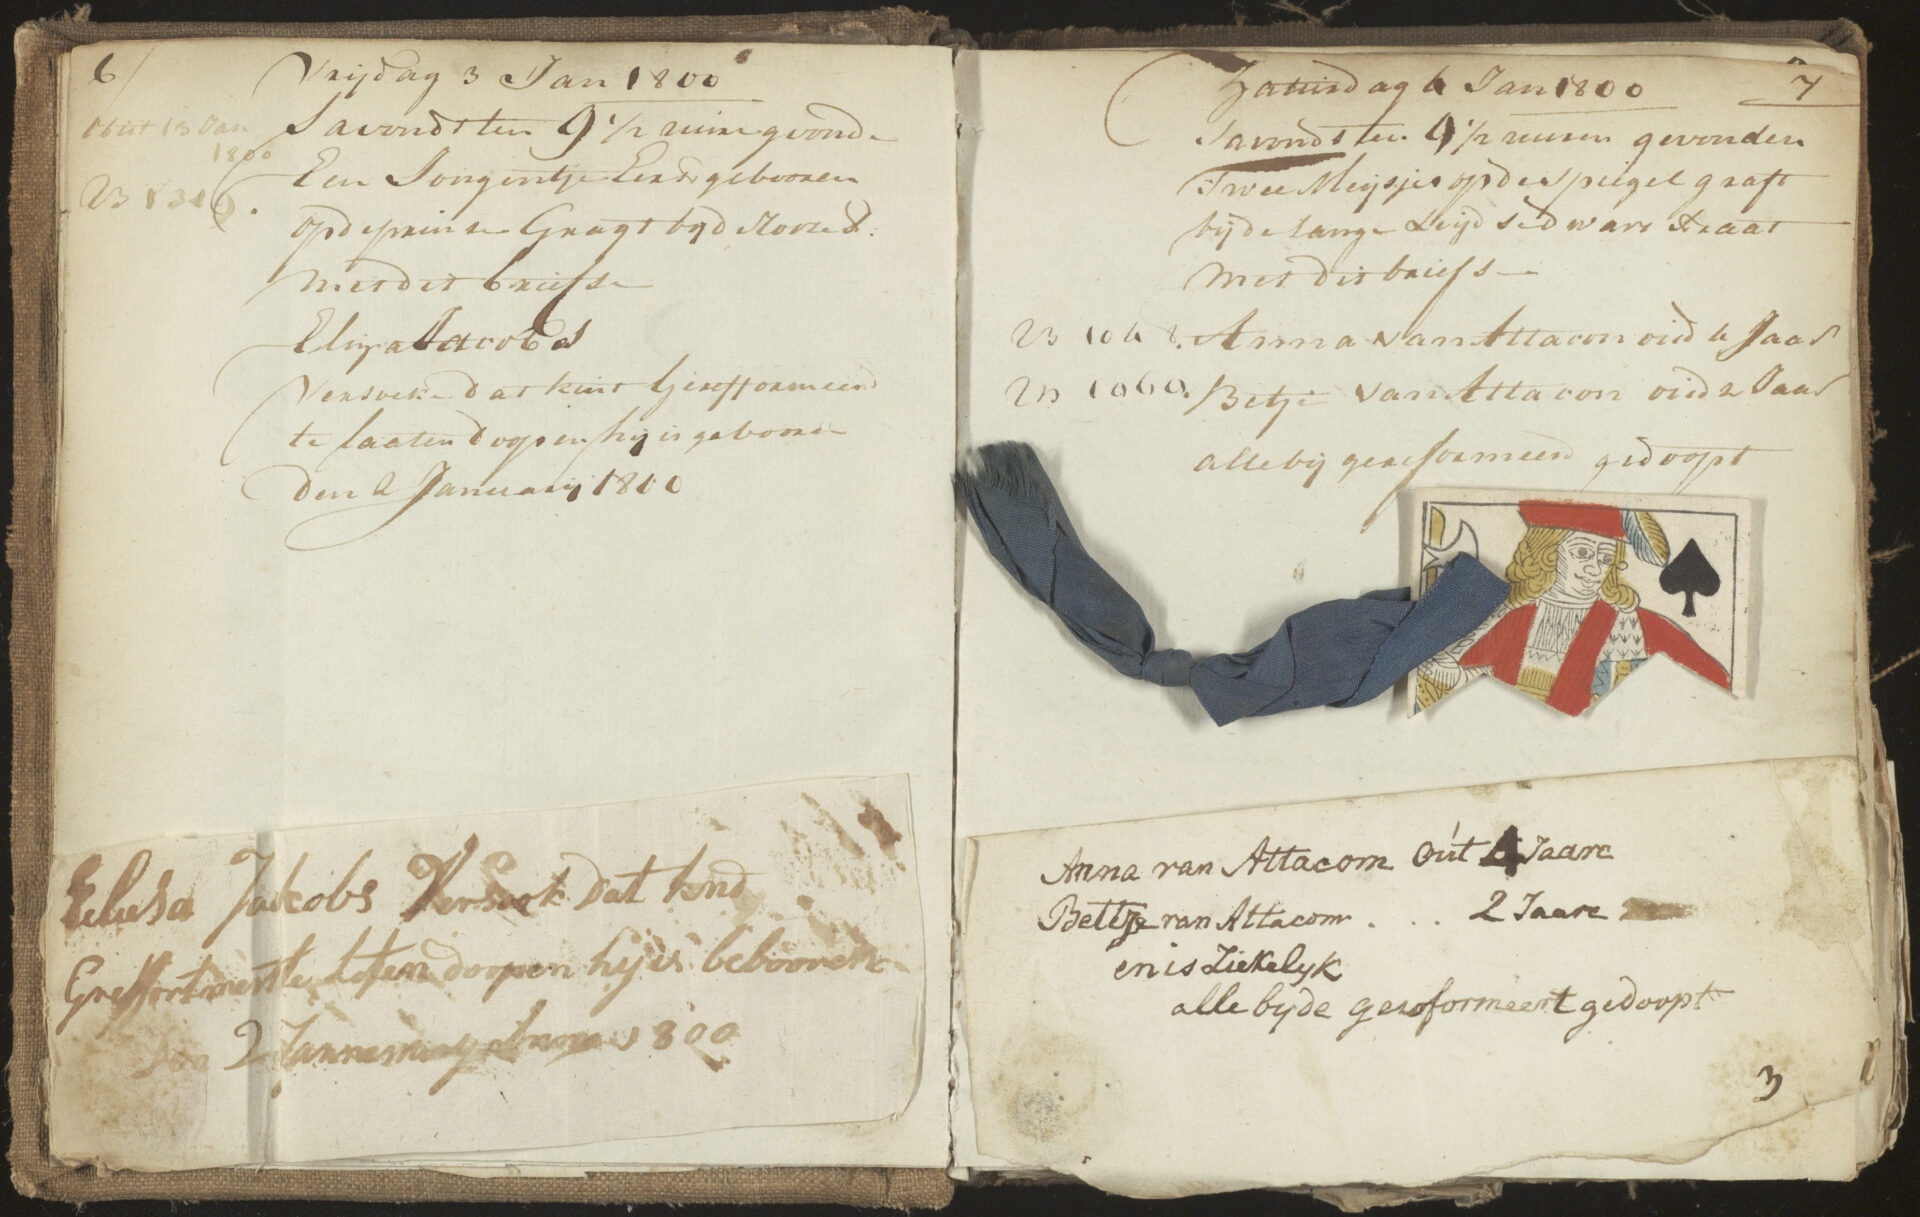 6/
Vrijdag 3 Jan 1800
obiit 13 Jan
1800
Savonds ten 9 1/2 uure gevonde
Een Jongentje Eerst gebooren
op de prinse Gragt by d
met dit briefse
Eliza Jacobs
Versoeke dat kint Gereformeerd
te laaten doopen hij is geboore
den 2 January 1800
Jakobs Versoek Dat kind
doopen hij is
2 1800
7
Zaturdag 4 Jan 1800
Savonds ten 9 1/2 uuren gevonden
Twee Meijsjes op de Spiegel graft
bij de lange Leijdsedwars straat
Met dit briefse
Anna van Attacon oud 4 Jaar
Betje van Attacon oud 2 Jaar
alle bij gereformeerd gedoopt
Anna van Attacom Out 4 Jaare
Bettje van Attacom . . . 2 Jaare
en is Ziekelyk
alle byde gereformeert gedoopt
3